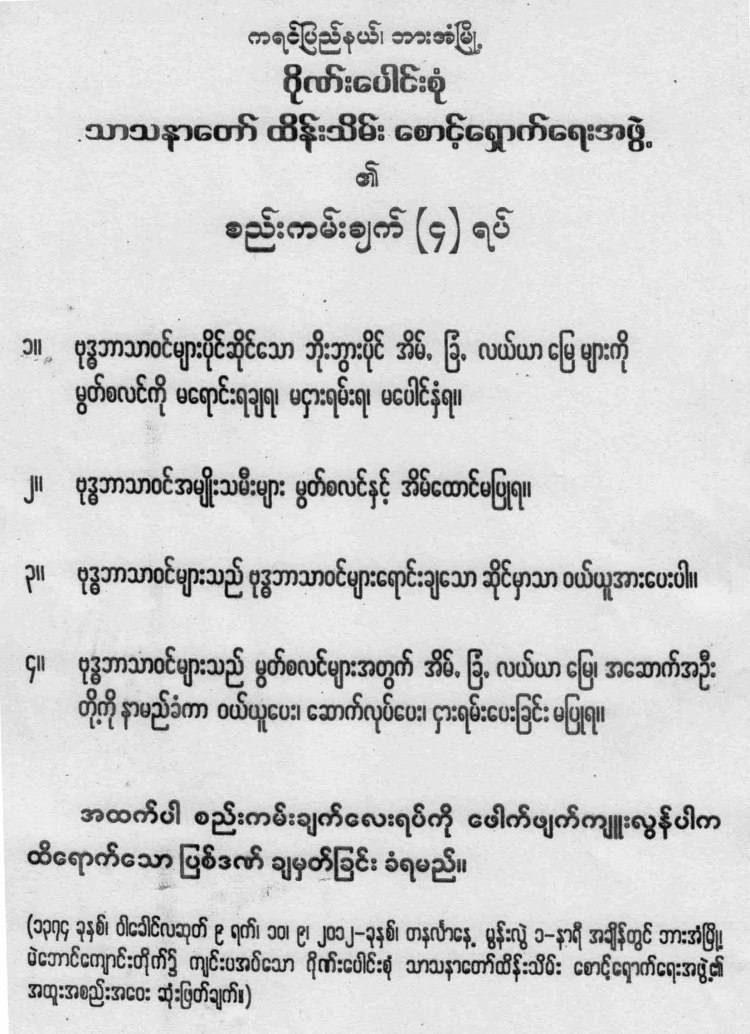 ကရင်ပြည်နယ်၊ ဘားအံမြို့
ဂိုဏ်းပေါင်းစုံ
သာသနာတော် ထိန်းသိမ်း စောင့်ရှောက်ရေးအဖွဲ့
၏
စည်းကမ်းချက် (၄) ရပ်
၁။ ဗုဒ္ဓဘာသာဝင်များပိုင်ဆိုင်သော ဘိုးဘွားပိုင် အိမ်, ခြံ, လယ်ယာ မြေ များကို
မွတ်စလင်ကို မရောင်းရချရ၊ မငှားရမ်းရ၊ မပေါင်နှံရ။
၂။ ဗုဒ္ဓဘာသာဝင်အမျိုးသမီးများ မွတ်စလင်နှင့် အိမ်ထောင်မပြုရ။
၃။ ဗုဒ္ဓဘာသာဝင်များသည် ဗုဒ္ဓဘာသာဝင်များရောင်းချသော ဆိုင်မှာသာ ဝယ်ယူအားပေးပါ။
၄။ ဗုဒ္ဓဘာသာဝင်များသည် မွတ်စလင်များအတွက် အိမ်, ခြံ, လယ်ယာ မြေ၊ အဆောက်အဦး
တို့ကို နာမည်ခံကာ ဝယ်ယူပေး၊ ဆောက်လုပ်ပေး၊ ငှားရမ်းပေးခြင်း မပြုရ။
အထက်ပါ စည်းကမ်းချက်လေးရပ်ကို ဖေါက်ဖျက်ကျူးလွန်ပါက
ထိရောက်သော ပြစ်ဒဏ် ချမှတ်ခြင်း ခံရမည်။
(၁၃၇၄ ခုနှစ်၊ ဝါခေါင်လဆုတ် ၉ ရက်၊ ၁၀၊ ၉၊ ၂၀၁၂-ခုနှစ်၊ တနင်္လာနေ့ မွန်းလွဲ ၁-နာရီ အချိန်တွင် ဘားအံမြို့၊
မဲဘောင်ကျောင်းတိုက်၌ ကျင်းပအပ်သော ဂိုဏ်းပေါင်းစုံ သာသနာတော်ထိန်းသိမ်း စောင့်ရှောက်ရေးအဖွဲ့၏
အထူးအစည်းအဝေး ဆုံးဖြတ်ချက်။)